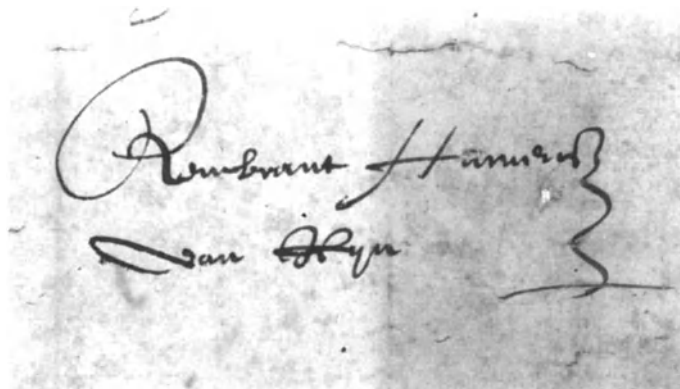 Rembrant Harmensz
van Ryn